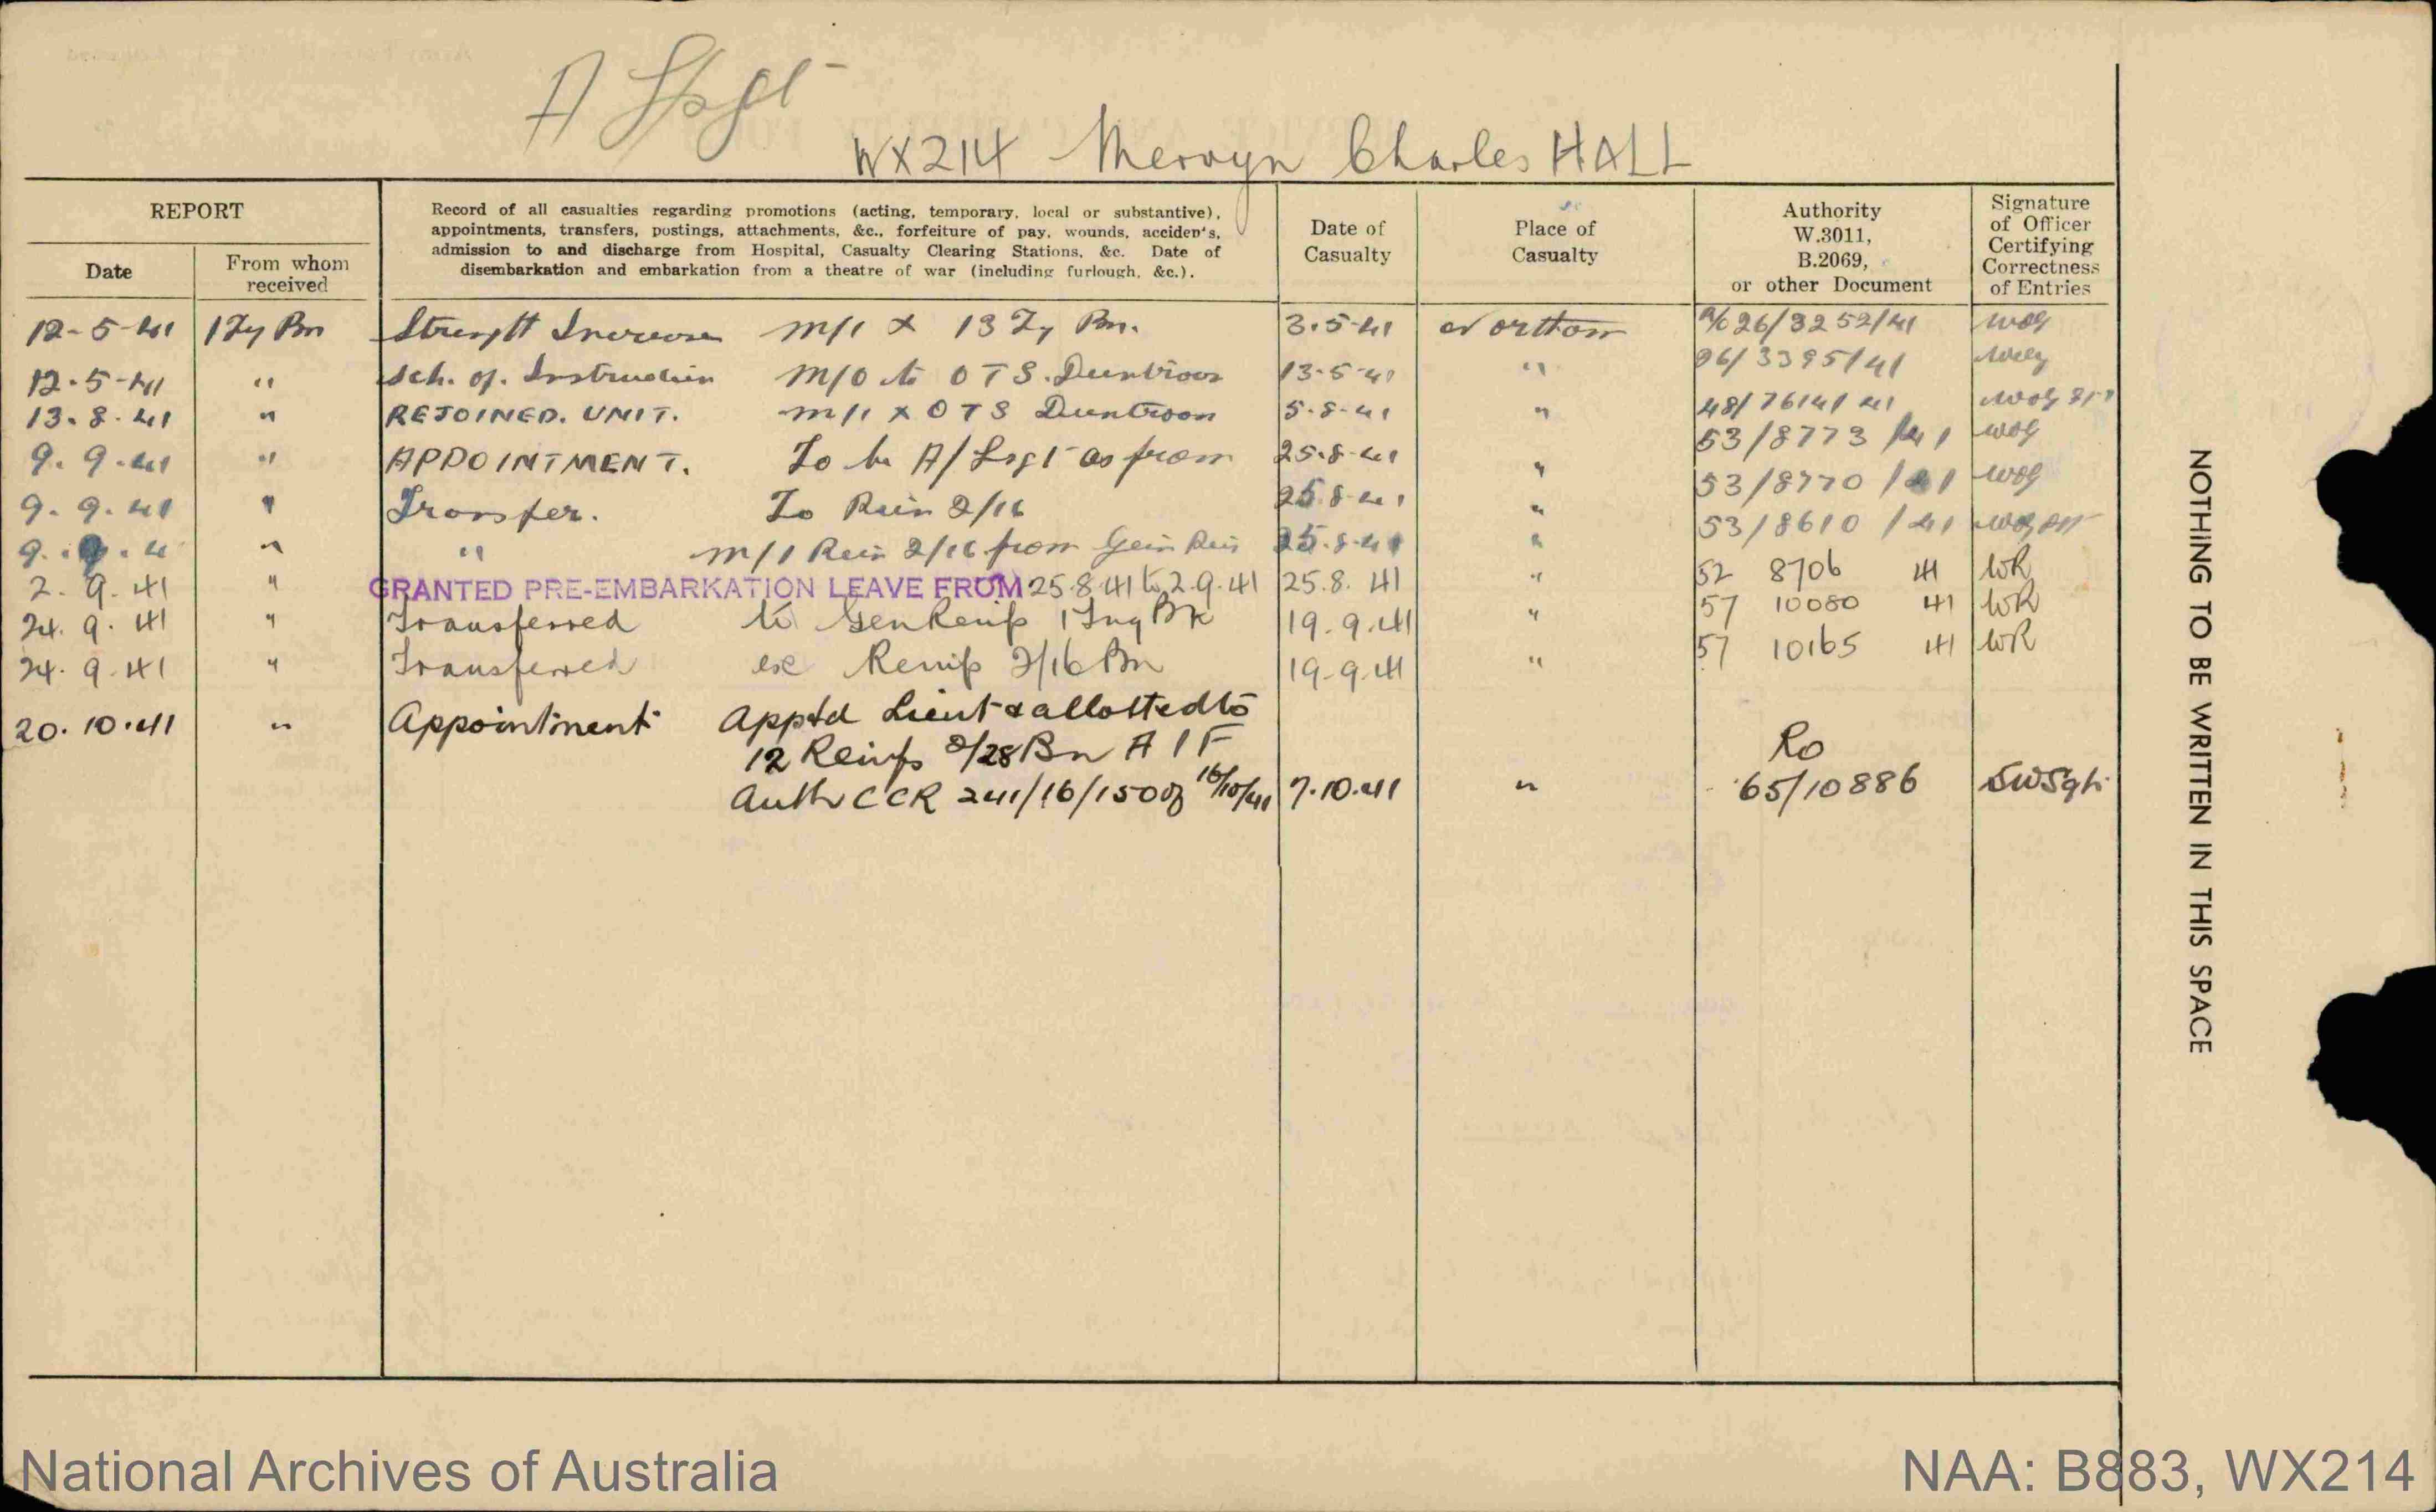 A/Sgt
WX214 Mervyn Charles HALL
REPORT
Date
From whom
received
Record of all casualties regarding promotions (acting, temporary, local or substantive),
appointments, transfers, postings, attachments, &c., forfeiture of pay, wounds, acciden's,
admission to and discharge from Hospital, Casualty Clearing Stations, &c. Date of
disembarkation and embarkation from a theatre of war (including furlough, &c.).
Date of
Casualty
Place of
Casualty
Authority
W.3011,
B.2069,
or other Document
Signature
of Officer
Certifying
Correctness
of Entries
12-5-41 1 Tg Bn Strength Increase M/I X 13 Tg Bn. 3.5.41 Northam 26/3252/41
12.5-41 " Sch. of. Instruction M/O to OTS. Duntroon 13.5.41 " 26/3395/41
13.8.41 " REJOINED. UNIT. M/I X OTS Duntroon 5.8.41 " 48/7614/41
9.9.41 " APPOINTMENT. To be A/Sgt as from 25.8.41 " 53/8773/41
9.9.41 " Transfer. To Rein 2/16 25.8.41 " 53/8770/41
9.9.4 " " M/I Rein 2/16 from Gein Rein 25.8.41 " 53/8610/41
2.9.41 " GRANTED PRE-EMBARKATION LEAVE FROM 25.8.41 to 2.9.41 25.8.41 " 52 8706 41 WR
24.9.41 " Transferred to Gen Reinfs 1 Tng Bn 19.9.41 " 57 10080 41 WR
24.9.41 " Transferred ex Reinfs 2/16 Bn 19-9.41 " 57 10165 41 WR
20.10.41 " Appointment Apptd Lieut & allotted to
12 Reinfs 2/28 Bn AIF Ro
Auth CCR 241/16/150 of 16/10/41 7.10.41 " 65/10886
NOTHING TO BE WRITTEN IN THIS SPACE
National Archives of Australia
NAA: B883, WX214